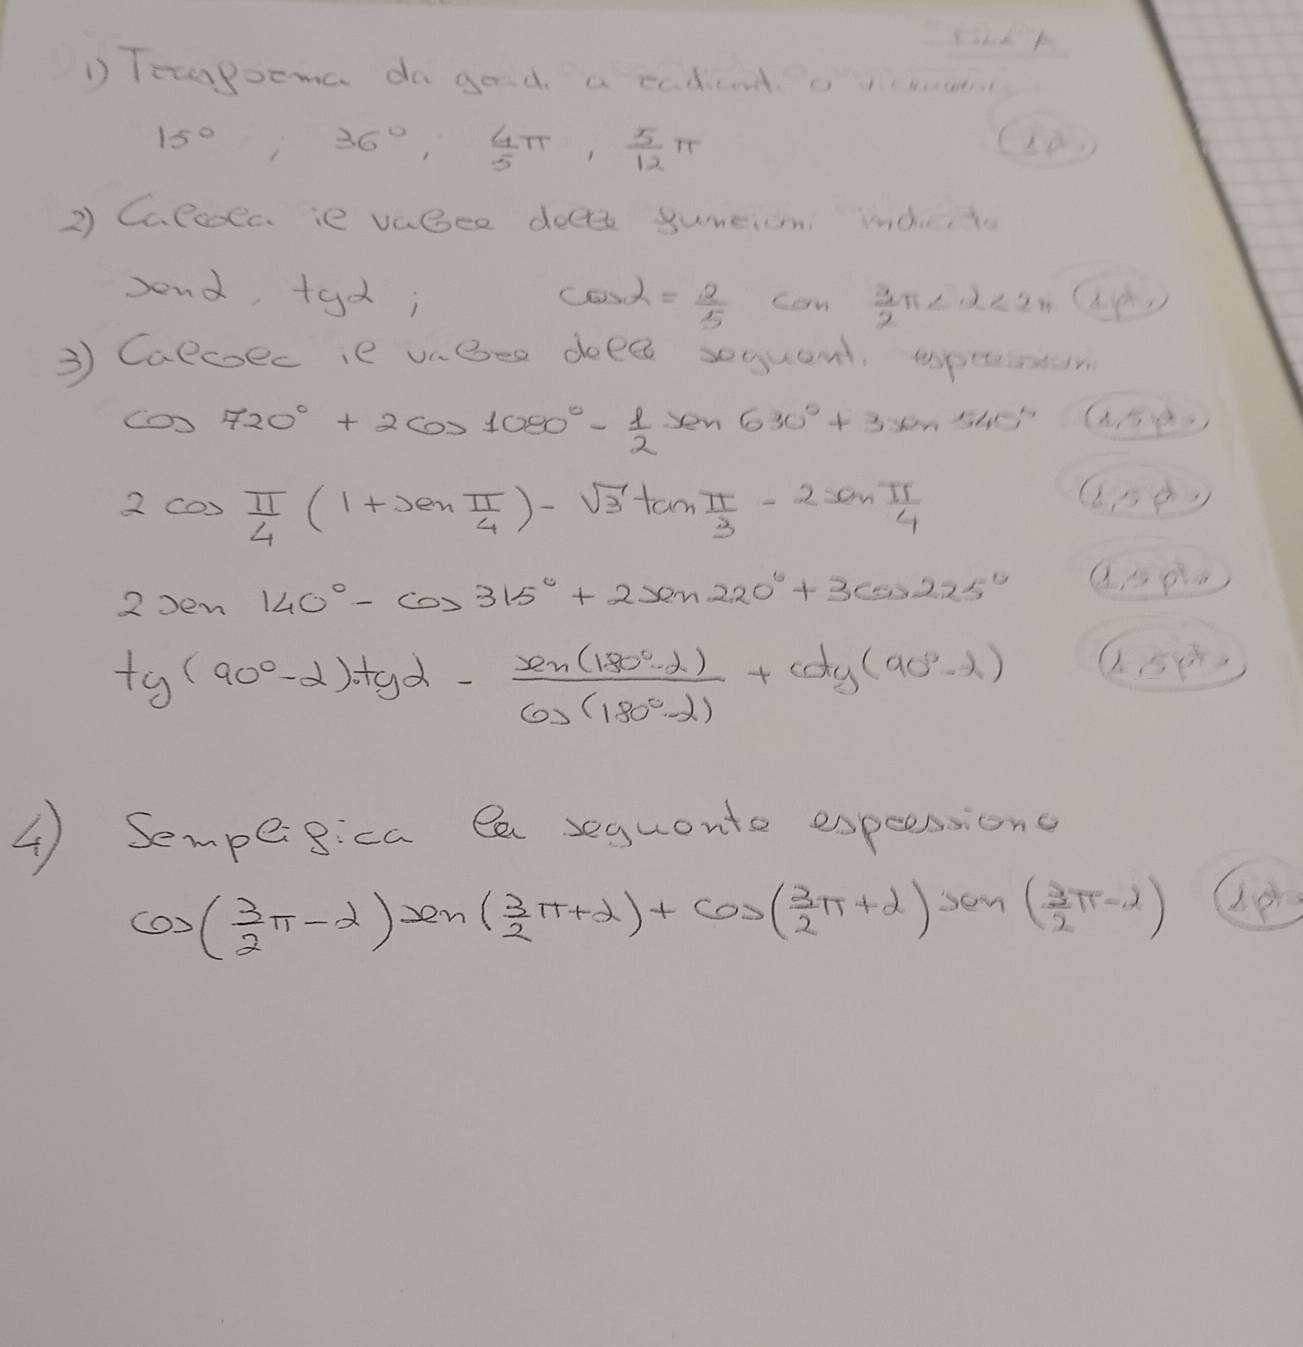 FILA A
1) Trasforma da gradi a radianti o viceversa
15° ; 36° , 4/5 π , 5/12 π (1p.)
2) Calcola il valore delle funzioni indicate
senα , tgα ; cosα = 2/5 con 3/2 π < α < 2π (1pt.)
3) Calcola il valore delle seguenti espressioni
cos 720° + 2 cos 1080° - 1/2 sen 630° + 3 sen 540° (1,5 pt.)
2 cos π/4 (1 + sen π/4) - √3 tan π/3 - 2 sen π/4 (1,5 pt.)
2 sen 140° - cos 315° + 2 sen 220° + 3 cos 225° (1,5 pt.)
tg(90° - α) · tgα - sen(180° - α) / cos(180° - α) + cotg(90° - α) (1,5 pt.)
4) Semplifica la seguente espressione
cos(3/2 π - α) sen(3/2 π + α) + cos(3/2 π + α) sen(3/2 π - α) (1pt.)